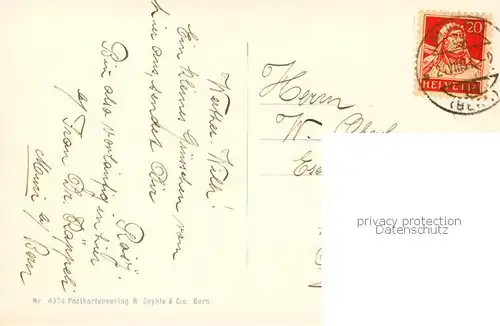 Werther Willi!
Ein kleines Grüsschen von
hier aus, sendet Dir
Rösy.
Bin also vorläufig in hier
a/ Frau Dr. Käppeli
Muri a/
Bern
Herrn
W.
20
HELVETIA
(BERN)
privacy protection
oldthing.de
Nr. 4374 Postkartenverlag R. Deyhle & Cie. Bern